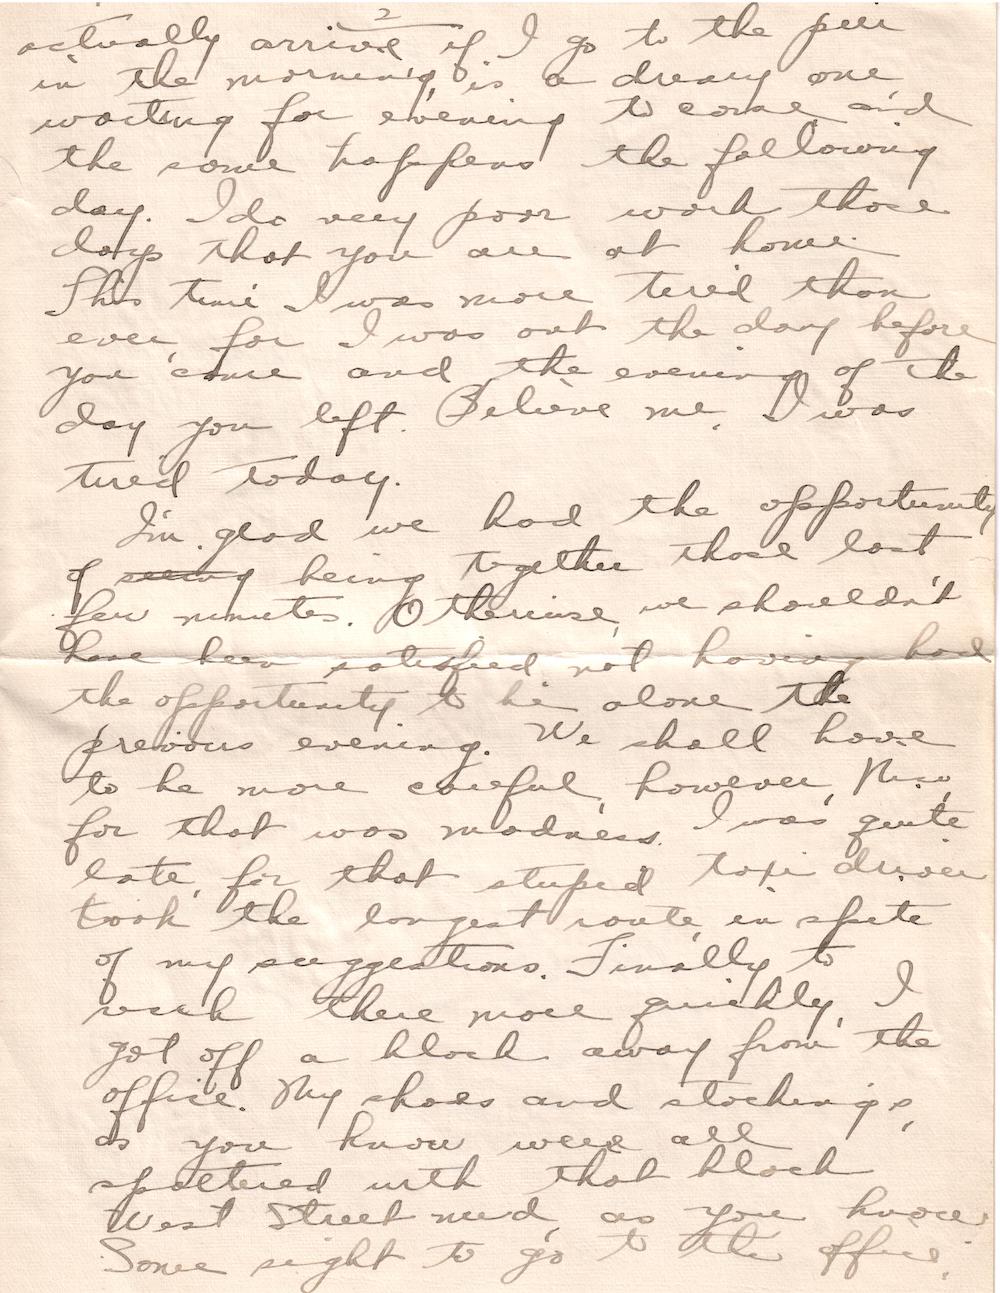 2
actually arrived if I go to the pier
in the morning, is a dreary one
waiting for evening to come and
the same happens the following
day. I do very poor work those
days that you are at home.
This time I was more tired than
ever, for I was out the day before
you came and the evening of the
day you left. Believe me, I was
tired today.
I'm glad we had the opportunity
of seeing being together those last
few minutes. Otherwise, we shouldn't
have been satisfied not having had
the opportunity to be alone the
previous evening. We shall have
to be more careful, however,
for that was madness. I was quite
late, for that stupid taxi driver
took the longest route, in spite
of my suggestions. Finally to
reach there more quickly, I
got off a block away from the
office. My shoes and stockings,
as you know were all
spattered with that black
West Street mud, as you know.
Some sight to go to the office.